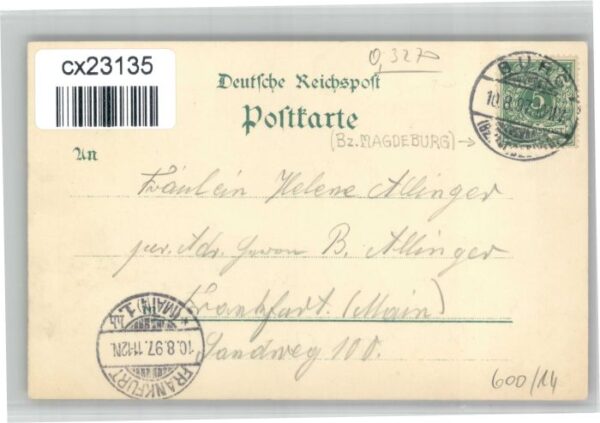 cx23135
0,3270
Deutsche Reichspost
Postkarte
BURG
10.8.97
(Bz. MAGDEBURG)
(Bz. MAGDEBURG) →
5
An
Fräulein Helene Allinger
per. Adr. Herrn B. Allinger
Frankfurt. (Main)
Sandweg 100.
FRANKFURT
10.8.97. 11-12N.
*(MAIN) 1.
600/14